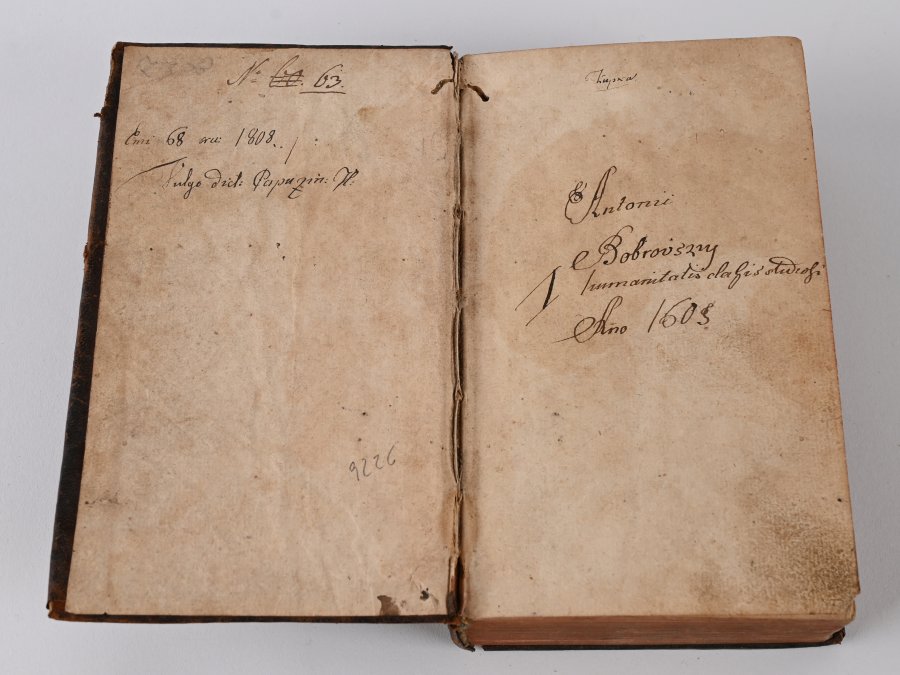 No 63.
Emi 68 xr: 1808.
Vulgo dict: Papazin: H:
9226
Antonii
Bobrovszny
humanitatis claßis studiosi
Ano 1603